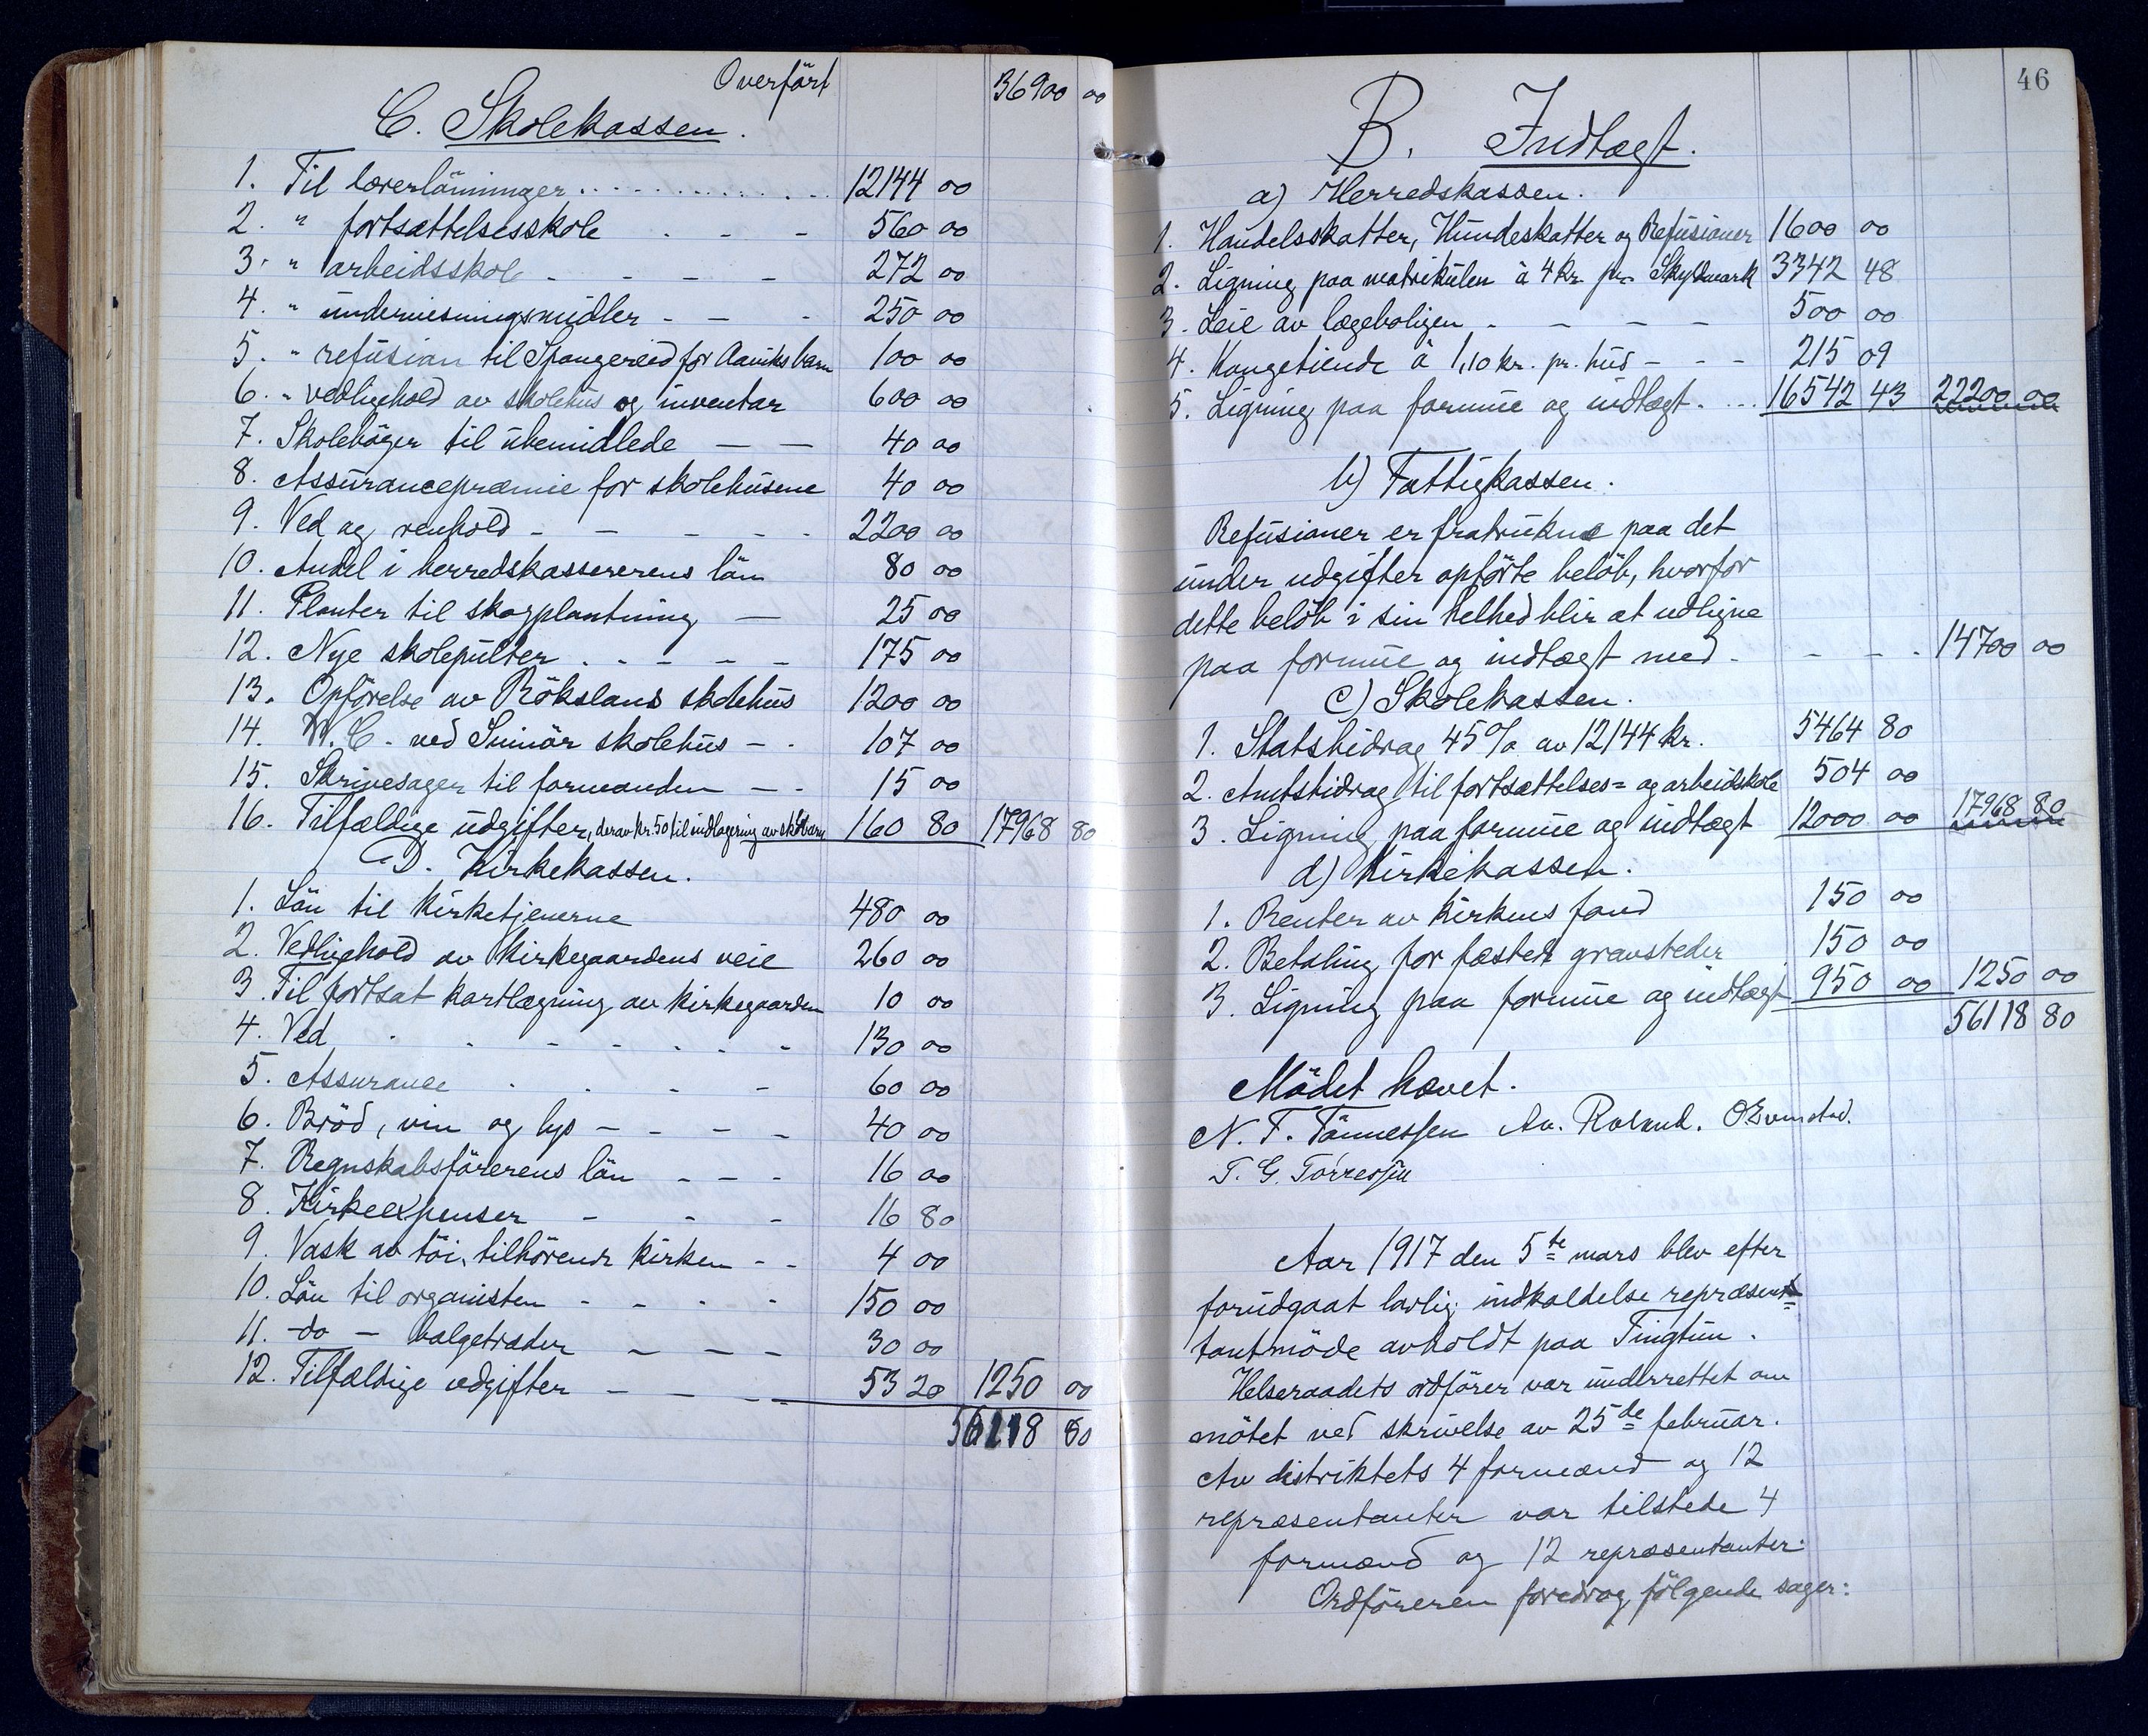 Overført 36900 00
C. Skolekassen.
1. Til lærerlönninger 12144 00
2. " fortsættelsesskole - - - 560 00
3. " arbeidsskole - - - - 272 00
4. " undervisningsmidler - - - 250 00
5. " refusion til Spangereid for Aaviks barn 100 00
6. " vedligehold av skolehus og inventar 600 00
7. Skolebøger til ubemidlede — — 40 00
8. Assurancepræmie for skolehusene 40 00
9. Ved og renhold - - - - - 2200 00
10. Andel i herredskassererens lön 80 00
11. Planter til skogplantning — 25 00
12. Nye skolepulter - - - - - 175 00
13. Opförelse av Röksland skolehus 1200 00
14. W.C. ved Sninör skolehus - - 107 00
15. Skrivesager til formanden - - 15 00
16. Tilfældige udgifter, derav kr. 50 til indlogering av skolebarn 160 80 17968 80
D. Kirkekassen.
1. Lön til kirketjenerne 480 00
2. Vedligehold av kirkegaardens veie 260 00
3. Til fortsat kartlægning av kirkegaarden 10 00
4. Ved - - - - - - - 130 00
5. Assurance - - - - 60 00
6. Bröd, vin og lys - - - - 40 00
7. Regnskabsförerens lön - - - 16 00
8. Kirkeexpenser - - - 16 80
9. Vask av töi tilhörende kirken - - 4 00
10. Lön til organisten - - - - 150 00
11. -do- balgetræder - - - 30 00
12. Tilfældige udgifter - - - - 53 20 1250 00
56118 80
46
B. Indtægt.
a) Herredskassen.
1. Handelsskatter, Hundeskatter og Refusioner 1600 00
2. Ligning paa matrikulen à 4 kr. pr. Skyldmark 3342 48
3. Leie av lægeboligen - - - - 500 00
4. Kongetiende à 1,10 kr. pr. hud - - - 215 09
5. Ligning paa formue og indtægt - - - 16542 43 22200 00
b) Fattigkassen.
Refusioner er fratrukne paa det
under udgifter opförte belöb, hvorfor
dette belöb i sin helhed blir at udligne
paa formue og indtægt med - - - - 14700 00
c) Skolekassen.
1. Statsbidrag 45% av 12144 kr. 5464 80
2. Amtsbidrag til fortsættelses= og arbeidskole 504 00
3. Ligning paa formue og indtægt 12000 00 17968 80
d) Kirkekassen.
1. Renter av kirkens fond 150 00
2. Betaling for fæstede gravsteder 150 00
3. Ligning paa formue og indtægt 950 00 1250 00
56118 80
Mödet hævet.
N. T. Tönnessen Av. Roland.
T. G. Torressen
Aar 1917 den 5te mars blev efter
forudgaat lovlig indkaldelse represen=
tantmöde avholdt paa Tingtun.
Helseraadets ordfører var underrettet om
mötet ved skrivelse av 25de februar.
Av distriktets 4 formænd og 12
repræsentanter var tilstede 4
formænd og 12 repræsentanter.
Ordföreren foredrog fölgende sager: